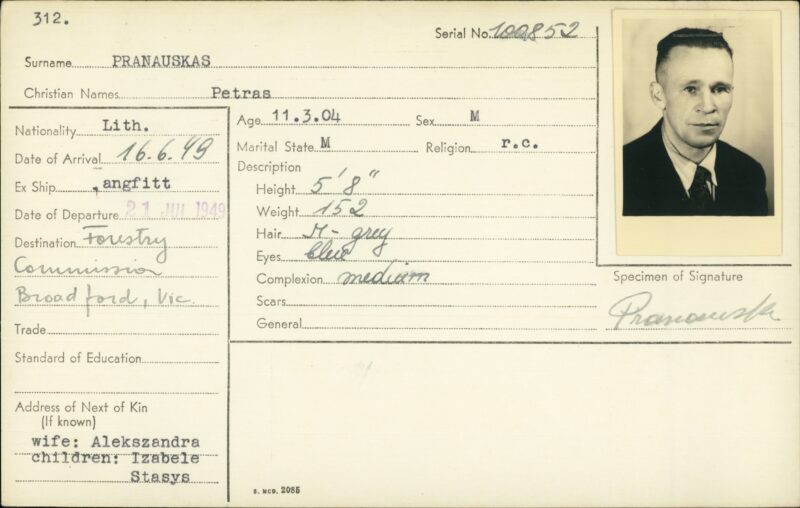 312.
Serial No. 100852
Surname PRANAUSKAS
Christian Names Petras
Nationality Lith.
Date of Arrival 16.6.49
Ex Ship angfitt
Date of Departure 21 JUL 1949
Destination Forestry
Commission
Broadford, Vic.
Trade
Standard of Education
Address of Next of Kin
(If known)
wife: Alekszandra
children: Izabele
Stasys
Age 11.3.04 Sex M
Marital State M Religion r.c.
Description
Height 5' 8"
Weight 152
Hair M-grey
Eyes blue
Complexion medium
Scars
General
Specimen of Signature
S. MCD. 2085